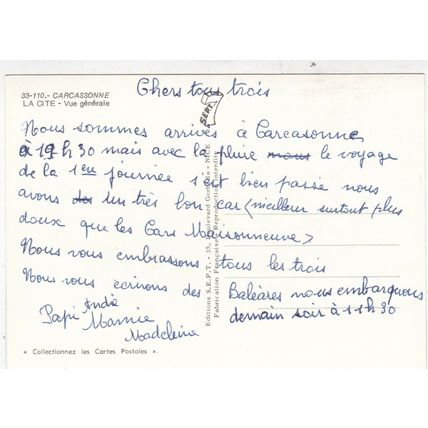 33-110.- CARCASSONNE
LA CITE - Vue générale
Chers tous trois
Nous sommes arrivés à Carcasonne
à 19h30 mais avec la pluie le voyage
de la 1ère journée s'est bien passé nous
avons un très bon car (meilleur surtout plus
doux que les Cars Maisonneuve)
Nous vous embrassons tous les trois
Nous vous écrirons des Baléares nous embarquons
demain soir à 11h30
Papi André
Mamie
Madeleine
« Collectionnez les Cartes Postales ».
Editions S.E.P.T. - 35, Boulevard - NICE
Fabrication Française - Reproduction Interdite
SEPT